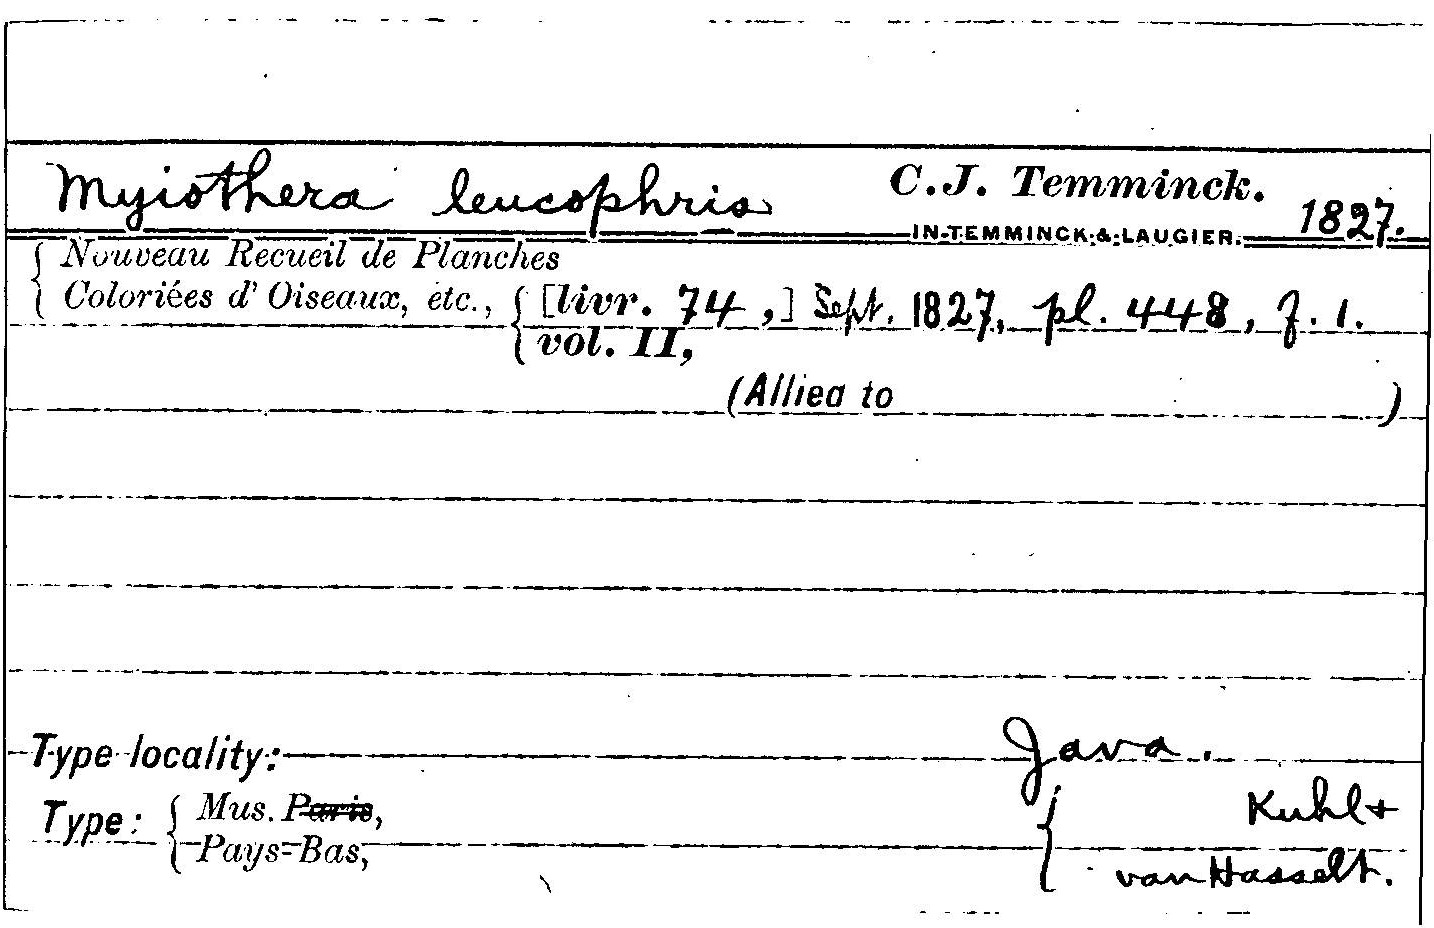 Myiothera leucophris C.J. Temminck. 1827.
IN TEMMINCK & LAUGIER.
Nouveau Recueil de Planches
Coloriées d' Oiseaux, etc., [livr. 74,] Sept. 1827, pl. 448, f. 1.
vol. II,
(Allied to )
Type locality: Java.
Type: Mus. Paris, Kuhl +
Pays-Bas, van Hasselt.